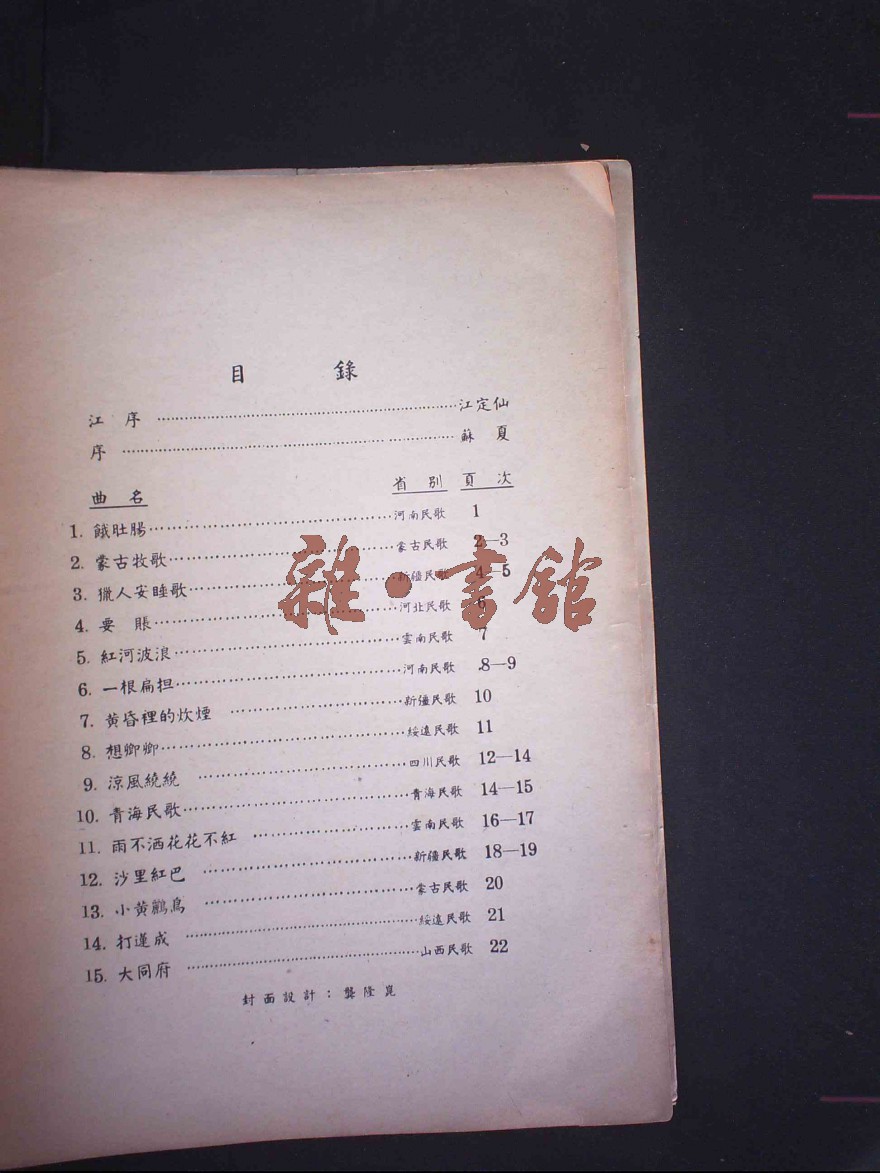 目 錄
江 序 ……江定仙
序 ……蘇 夏
曲 名 省 別 頁 次
1. 餓肚腸……河南民歌 1
2. 蒙古牧歌……蒙古民歌 2—3
3. 獵人安睡歌……新疆民歌 4—5
4. 要 賬……河北民歌 6
5. 紅河波浪……雲南民歌 7
6. 一根扁担……河南民歌 8—9
7. 黄昏裡的炊煙……新疆民歌 10
8. 想卿卿……綏遠民歌 11
9. 涼風繞繞……四川民歌 12—14
10. 青海民歌……青海民歌 14—15
11. 雨不洒花花不紅……雲南民歌 16—17
12. 沙里紅巴……新疆民歌 18—19
13. 小黄鸝鳥……蒙古民歌 20
14. 打蓮成……綏遠民歌 21
15. 大同府……山西民歌 22
封面設計：龔隆崑
雜·書館